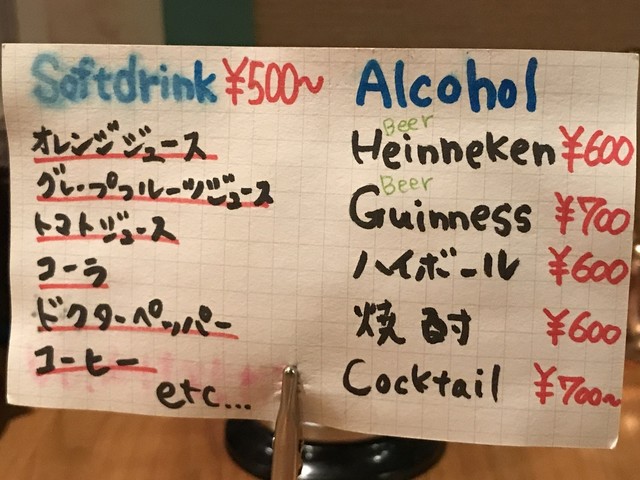 Softdrink ¥500~
オレンジジュース
グレープフルーツジュース
トマトジュース
コーラ
ドクターペッパー
コーヒー
etc...
Alcohol
Beer
Heinneken ¥600
Beer
Guinness ¥700
ハイボール ¥600
焼酎 ¥600
Cocktail ¥700~